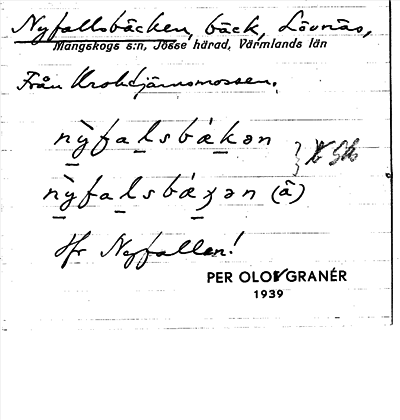 Nyfallsbäcken, bäck, Lövnäs,
Mangskogs s:n, Jösse härad, Värmlands län
Från Krokdjärnsmossen.
nỳfalsbǽkən
nỳfalsbǽʒən (ä)
Jfr Nyfallen!
PER OLOV GRANÉR
1939